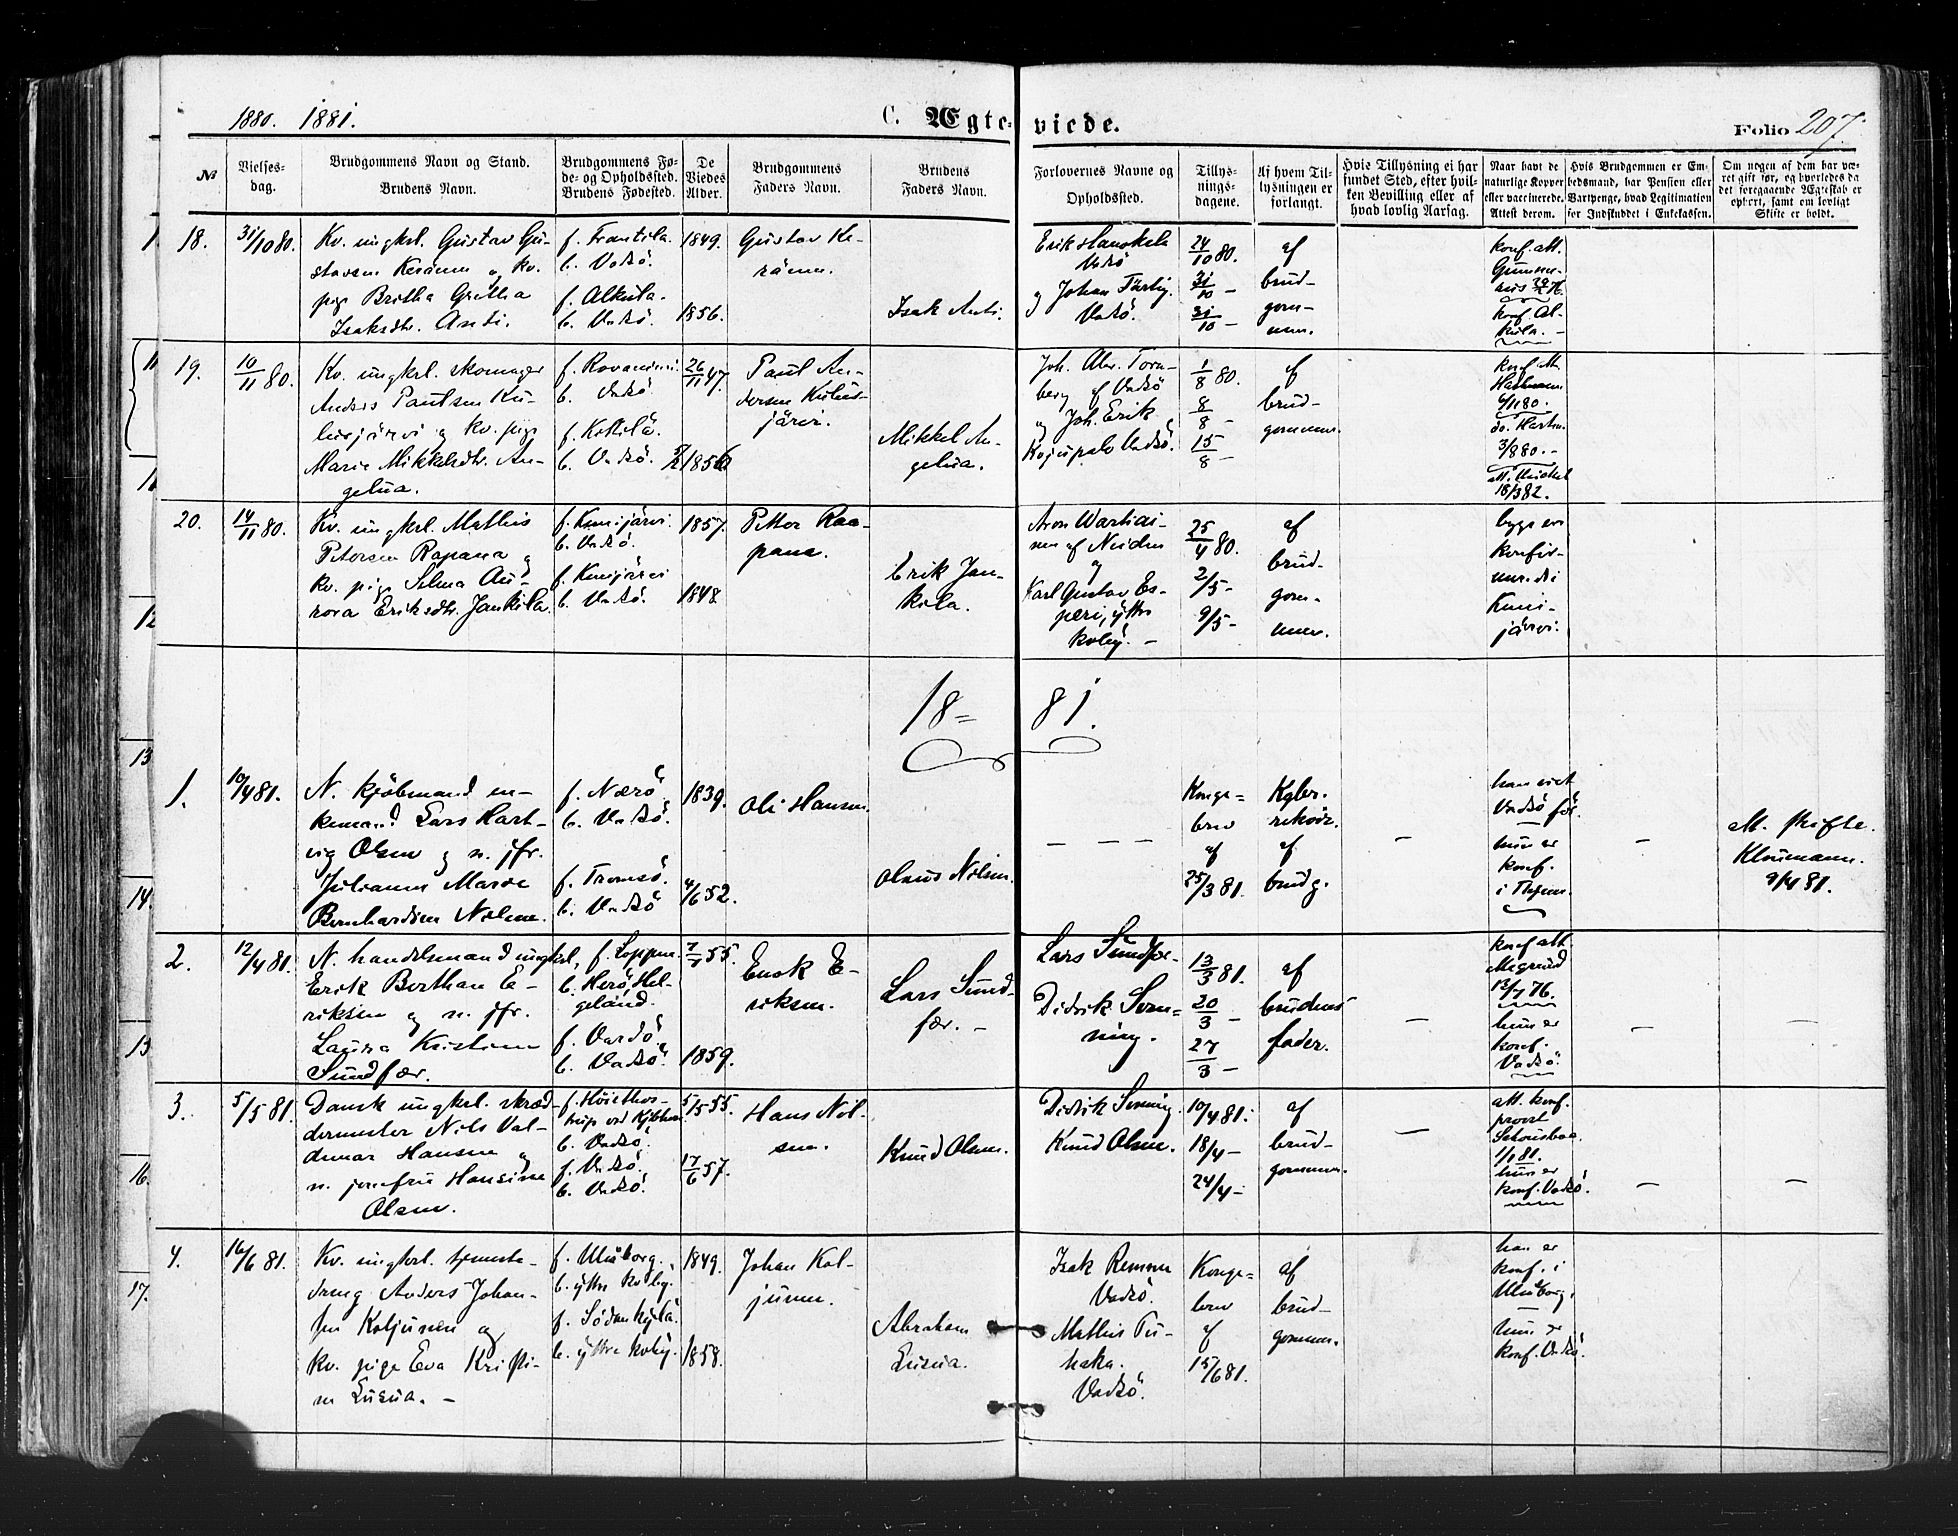 1880. 1881.
C. Ægteviede.
Folio 207.
No
Vielsesdag.
Brudgommens Navn og Stand.
Brudens Navn.
Brudgommens Føde- og Opholdssted.
Brudens Fødested.
De Viedes Alder.
Brudgommens Faders Navn.
Brudens Faders Navn.
Forlovernes Navne og Opholdssted.
Tillysningsdagene.
Af hvem Tillysningen er forlangt.
Hvis Tillysning ei har fundet Sted, efter hvilken Bevilling eller af hvad lovlig Aarsag.
Naar havt de naturlige Kopper eller vaccinerede. Attest derom.
Hvis Brudgommen er Embedsmand, har Pension eller Vartpenge, hvad Legitimation for Indskuddet i Enkekassen.
Om nogen af dem har været gift før, og hvorledes da det foregaaende Ægteskab er ophørt, samt om lovligt Skifte er holdt.
18.
31/10 80.
Kv. ungkrl. Gustav Gu-
stavsen Keränen og kv.
pige Britha Gretha
Isaksdtr. Anti.
f. Frantila.
b. Vadsö.
f. Alkula.
b. Vadsö.
1849.
1856.
Gustav Ke-
ränen.
Isak Anti.
Erik Hanskela
Vadsö
og Johan
Vadsö.
24/10 80.
31/10 –
31/10 –
af
brud-
gom-
men.
konf. att.
konf. Al-
kula. –
19.
10/11 80.
Kv. ungkrl. skomager
Anders Paulsen Ku-
lusjärvi og kv. pige
Marie Mikkelsdtr. An-
gelua.
f. Rovaniemi.
b. Vadsö.
f. Kittilä.
b. Vadsö.
26/11 47.
1856
Paul An-
dersen Kulus-
järvi.
Mikkel An-
gelua.
Joh. Abr. Torn-
berg af Vadsö
og Joh. Erik
Vadsö.
1/8 80.
8/8 –
15/8 –
af
brud-
gommen.
konf. att.
6/11 80.
3/8 80. –
18/3 82.
20.
14/11 80.
Kv. ungkrl. Mathis
Petersen Rapana og
kv. pige Selma Au-
rora Eriksdtr. Jankila.
f. Kemijärvi.
b. Vadsö.
f. Kemijärvi
b. Vadsö.
1857.
1848.
Petter Raa-
pana.
Erik Jan-
kila.
Aron Wartiai-
nen af Neiden
og
Karl Gustav Es-
peri, yttre
kvby. –
25/4 80.
2/5 –
9/5 –
af
brud-
gom-
men.
begge ere
konfir-
mer. di
Kemi-
järvi.
18 = 81.
1.
10/4 81.
N. kjöbmand en-
kemand Lars Hart-
vig Olsen og n. jfr.
Julianne Marie
Bernhardine Nilsen.
f. Nærö
b. Vadsö.
f. Tromsö.
b. Vadsö
1839.
4/6 52.
Ole Hansen.
Olaus Nilsen.
– – –
Konge-
brev
af
25/3 81.
Kgbr.
af
brudg.
–
han viet
Vadsö för.
–
hun er
konf.
–
att. skifte.
Kloumann.
9/4 81.
2.
12/4 81.
N. handelsmand ungkrl.
Erik Berthan E-
riksen og n. jfr.
Laura Kristine
Sundfær.
f. Loppen.
b. Herö, Hel-
geland.
f. Vardö.
b. Vadsö.
55.
1859.
Enok E-
riksen.
Lars Sund-
fær. –
Lars Sundfær
Didrik Sven-
ning.
13/3 81.
20/3 –
27/3 –
af
brudens
fader.
–
konf. att.
13/7 76.
hun er
konf.
Vadsö.
–
–
3.
5/5 81.
Dansk ungkrl. skræd-
dermester Nils Val-
demar Hansen og
n. jomfru Hansine
Olsen.
b. Vadsö.
f. Vadsö.
b. Vadsö.
5/5 55.
17/6 57.
Hans Nil-
sen.
Knud Olsen.
Didrik Svenning.
Knud Olsen.
10/4 81.
18/4 –
24/4 –
af
brud-
gommen.
–
att. konf.
provst
1/1 81.
hun er
konf. Vadsö.
–
–
4.
16/6 81.
Kv. ungkrl. tjeneste-
dreng Anders Johan-
sen Koljunen og
kv. pige Eva Kristi-
ne Lusua. –
f. Uleåborg.
b. yttre kvby.
f. Sodankylä.
b. yttre kvby.
1849.
1858.
Johan Kol-
junen.
Abraham
Lusua.
Isak Remmu
Vadsö.
Mathis Pu-
haka.
Vadsö.
Konge-
brev
af
15/6 81.
af
brud-
gommen.
han er
konf. i
Uleåborg.
–
hun er
konf. Vadsö.